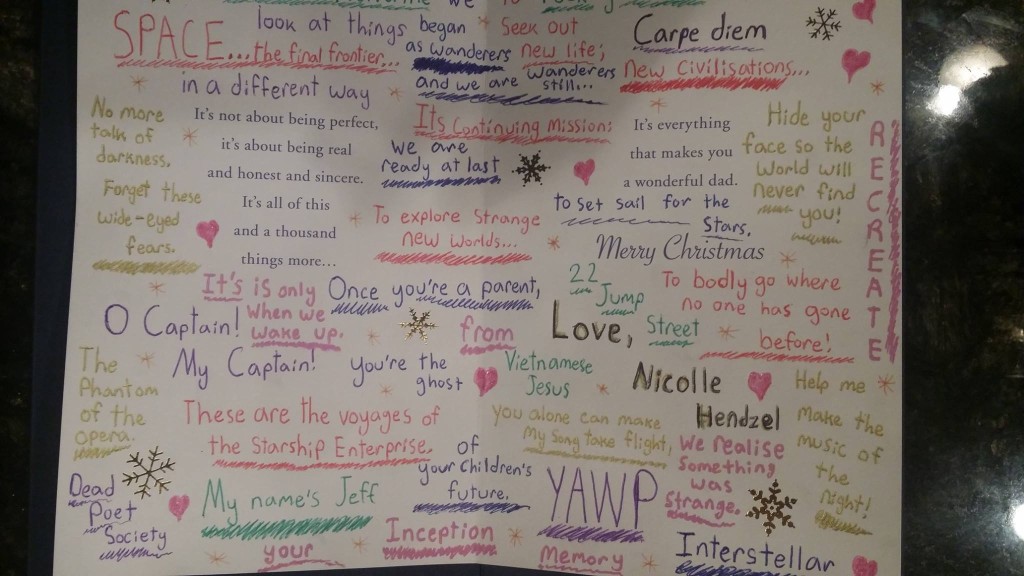 we
look at things began
Seek out
Carpe diem
SPACE...the final frontier...
as wanderers
new life;
and we are wanderers
still...
New Civilisations...
in a different way
No more
talk of
darkness,
Forget these
wide-eyed
fears.
It's not about being perfect,
it's about being real
and honest and sincere.
It's all of this
and a thousand
things more...
Its Continuing Mission:
we are
ready at last
It's everything
that makes you
a wonderful dad.
to set sail for the
Stars.
Merry Christmas
Hide your
face so the
World will
never find
you!
RECREATE
To explore Strange
new worlds...
It's is only
When we
wake up.
Once you're a parent,
22
Jump
Street
To bodly go where
no one has gone
before!
O Captain!
My Captain!
you're the
ghost
from
Love,
Nicolle
Hendzel
Vietnamese
Jesus
The
Phantom
of the
opera.
These are the voyages of
the Starship Enterprise.
of
your children's
future.
you alone can make
My Song take flight,
Help me
Make the
music of
the
Night!
We realise
Something
was
Strange.
Dead
Poet
Society
My name's Jeff
YAWP
Inception
your
Memory
Interstellar